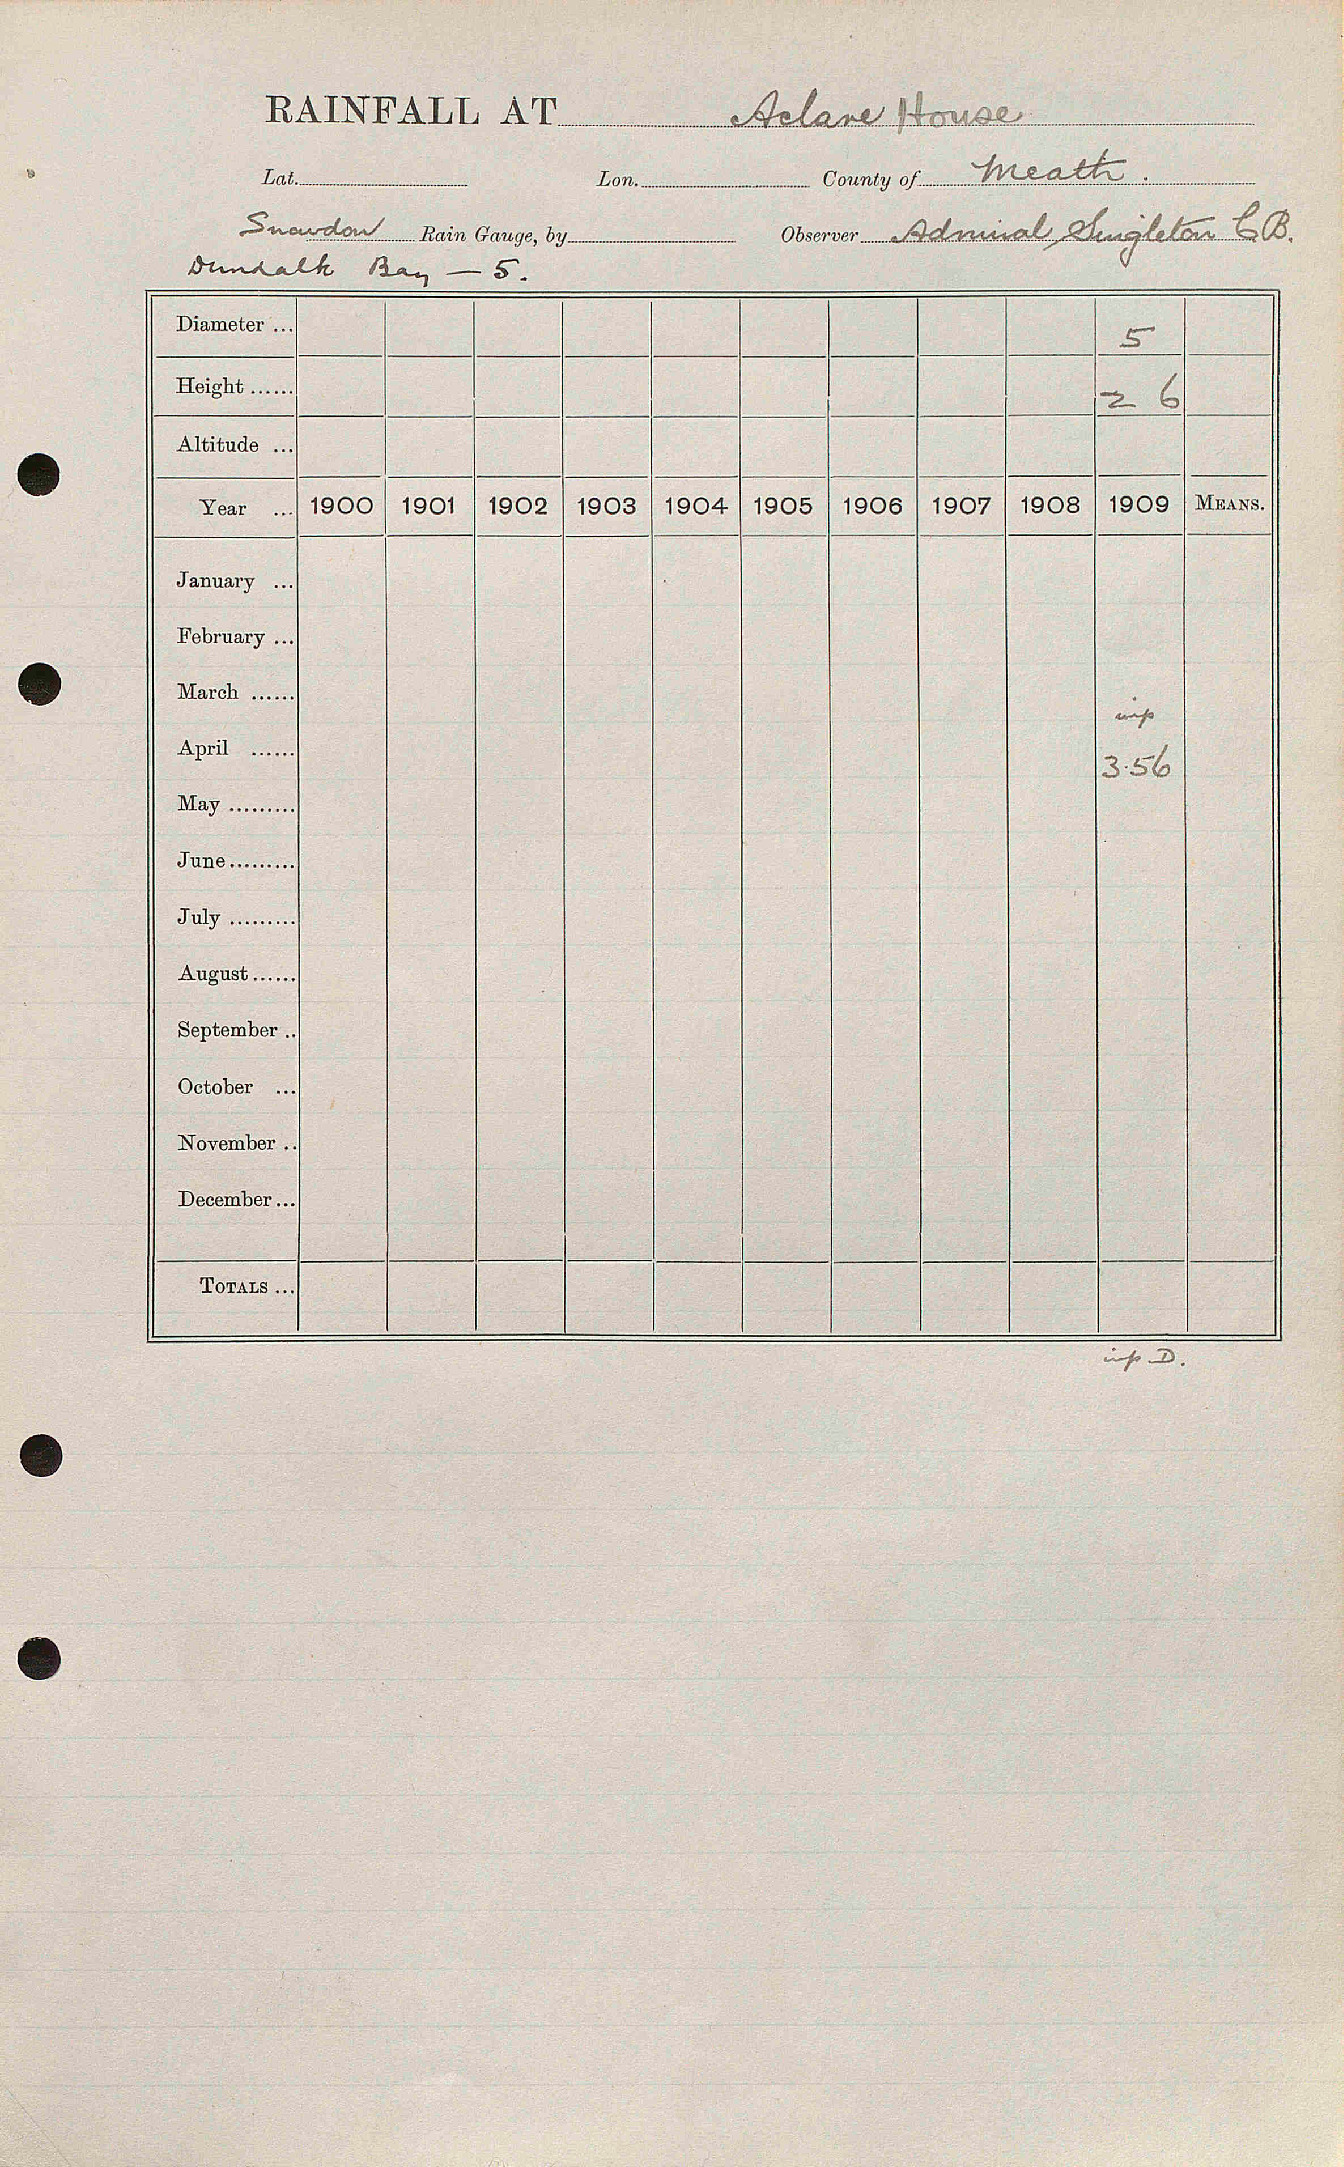 RAINFALL AT Aclare House
Lat. Lon. County of Meath.
Snowdon Rain Gauge, by Observer Admiral Singleton C B.
Dundalk Bay — 5.
Diameter ... 5
Height ...... 2 6
Altitude ...
Year ... 1900 1901 1902 1903 1904 1905 1906 1907 1908 1909 MEANS.
January ...
February ...
March ......
imp
April ...... 3.56
May .........
June.........
July .........
August......
September ..
October ...
November ..
December...
TOTALS ...
imp D.